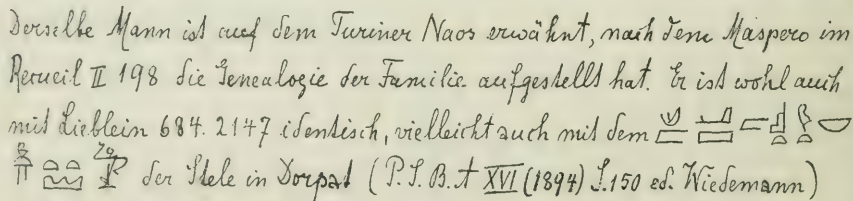 Derselbe Mann ist auf dem Turiner Naos erwähnt, nach dem Maspero im
Recueil II 198 die Genealogie der Familie aufgestellt hat. Er ist wohl auch
mit Lieblein 684. 2147 identisch, vielleicht auch mit dem
der Stele in Dorpat (P.S.B.A XVI (1894) S.150 ed. Wiedemann)